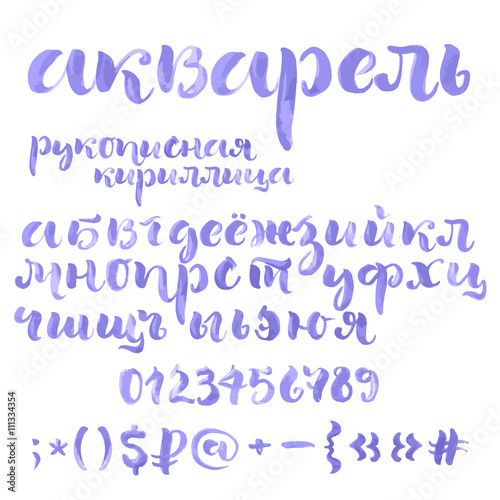 акварель
рукописная
кириллица
абвгдеёжзийкл
мнопрст уфхц
чшщъ ыьэюя
0123456789
;*()$₽@+-{«»#
Adobe Stock | #111334354